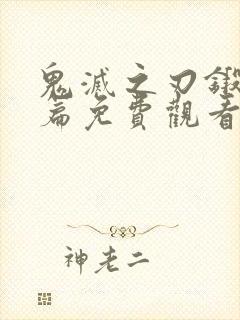 鬼滅之刃鍛
篇免費觀看
神老二